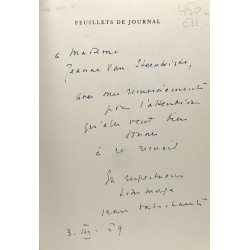 FEUILLETS DE JOURNAL
à Madame
Jeanne Van
avec mes remerciements
pour l'attention
qu'elle veut bien
donner
à ce recueil
En respectueux
hommage
Jean
3. III. 59